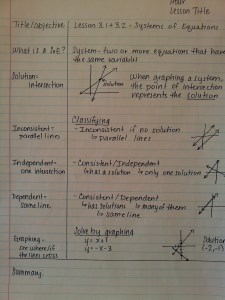 Hour
Lesson Title
Title/Objective Lesson 3.1 + 3.2 - Systems of Equations
What is a SoE? System - two or more equations that have
the same variables
Solution:
intersection
solution
When graphing a system,
the point of intersection
represents the solution
Classifying
Inconsistent -
parallel lines
- Inconsistent if no solution
↳ parallel lines
Independent -
one intersection
- Consistent/Independent
↳ has a solution ↳ only one solution
Dependent -
same line
- Consistent / Dependent
↳ has solutions ↳ many of them
↳ same line
Graphing -
see where/if
the lines cross
Solve by graphing
y = x + 1
y = -x - 3
Solution
(-2, -1)
Summary